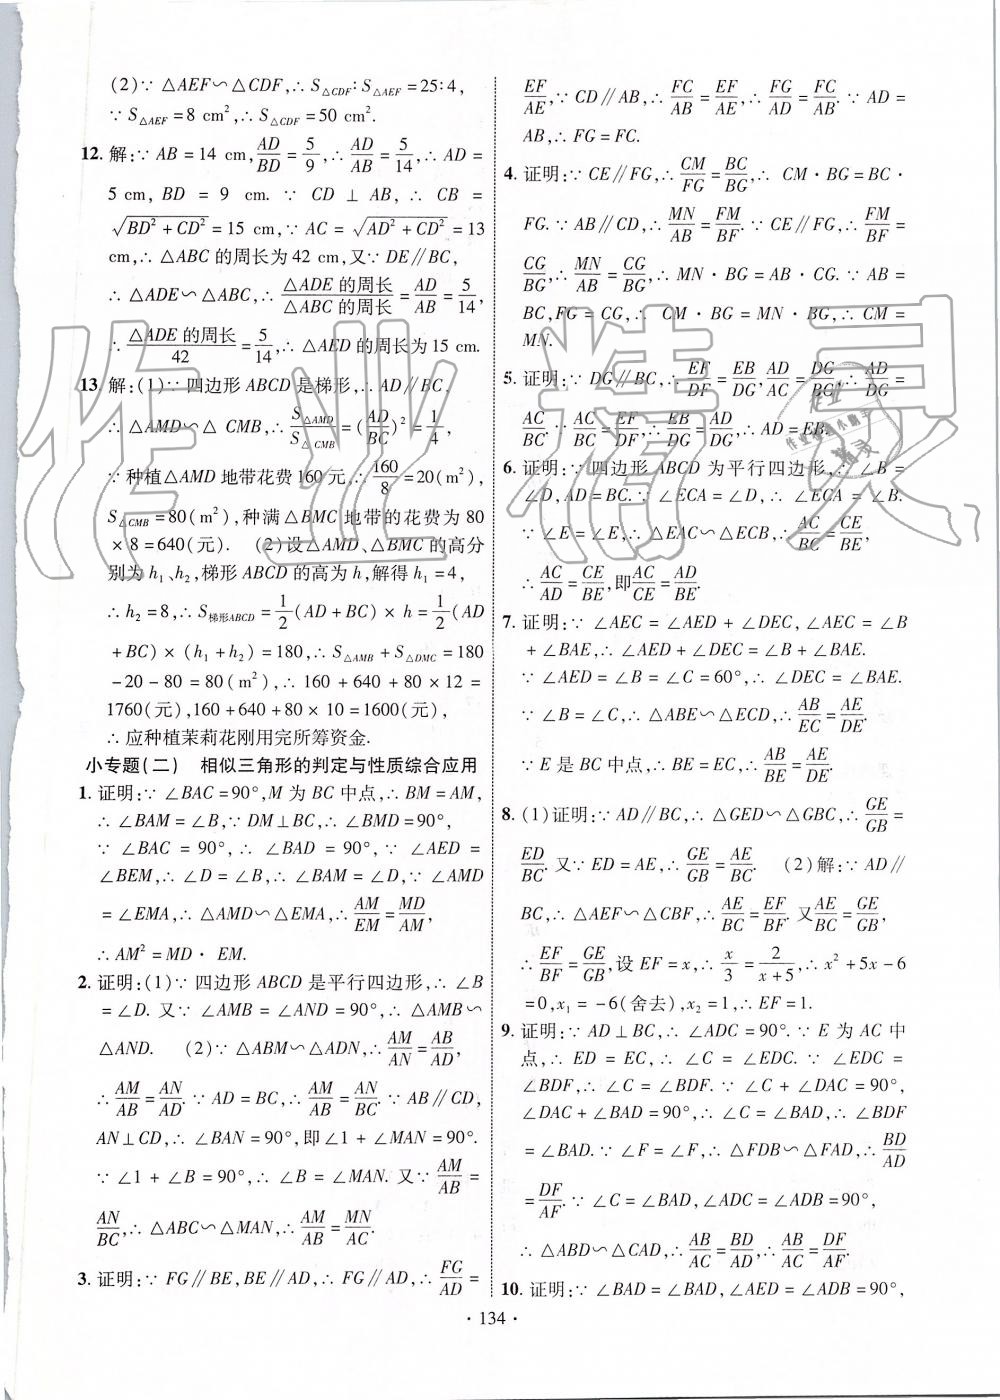 (2)∵ △AEF∽△CDF,∴S△CDF∶S△AEF=25∶4,
∵S△AEF=8 cm²,∴S△CDF=50 cm².
12. 解:∵AB=14 cm,AD/BD=5/9,∴AD/AB=5/14,∴AD=
5 cm,BD=9 cm. ∵ CD⊥AB,∴CB=
√(BD²+CD²)=15 cm,∵AC=√(AD²+CD²)=13
cm,∴△ABC的周长为42 cm,又∵DE∥BC,
∴△ADE∽△ABC,∴△ADE的周长/△ABC的周长=AD/AB=5/14,
∴△ADE的周长/42=5/14,∴△AED的周长为15 cm.
13. 解:(1)∵四边形ABCD是梯形,∴AD∥BC,
∴△AMD∽△CMB,∴S△AMD/S△CMB=(AD/BC)²=1/4,
∵种植△AMD地带花费160元,∴160/8=20(m²),
S△CMB=80(m²),种满△BMC地带的花费为80
×8=640(元). (2)设△AMD、△BMC的高分
别为h₁、h₂,梯形ABCD的高为h,解得h₁=4,
∴h₂=8,∴S梯形ABCD=1/2(AD+BC)×h=1/2(AD
+BC)×(h₁+h₂)=180,∴S△AMB+S△DMC=180
-20-80=80(m²),∴160+640+80×12=
1760(元),160+640+80×10=1600(元),
∴应种植茉莉花刚用完所筹资金.
小专题(二) 相似三角形的判定与性质综合应用
1. 证明:∵∠BAC=90°,M为BC中点,∴BM=AM,
∴∠BAM=∠B,∵DM⊥BC,∴∠BMD=90°,
∵∠BAC=90°,∴∠BAD=90°,∵∠AED=
∠BEM,∴∠D=∠B,∴∠BAM=∠D,∵∠AMD
=∠EMA,∴△AMD∽△EMA,∴AM/EM=MD/AM,
∴AM²=MD·EM.
2. 证明:(1)∵四边形ABCD是平行四边形,∴∠B
=∠D. 又∵∠AMB=∠AND=90°,∴△AMB∽
△AND. (2)∵△ABM∽△ADN,∴AM/AN=AB/AD,
∴AM/AB=AN/AD. ∵AD=BC,∴AM/AB=AN/BC. ∵AB∥CD,
AN⊥CD,∴∠BAN=90°,即∠1+∠MAN=90°.
∵∠1+∠B=90°,∴∠B=∠MAN. 又∵AM/AB=
AN/BC,∴△ABC∽△MAN,∴AM/AB=MN/AC.
3. 证明:∵FG∥BE,BE∥AD,∴FG∥AD,∴FG/AD=
EF/AE,∵CD∥AB,∴FC/AB=EF/AE,∴FG/AD=FC/AB. ∵AD=
AB,∴FG=FC.
4. 证明:∵CE∥FG,∴CM/FG=BC/BG,∴CM·BG=BC·
FG. ∵AB∥CD,∴MN/AB=FM/BF. ∵CE∥FG,∴FM/BF=
CG/BG,∴MN/AB=CG/BG,∴MN·BG=AB·CG. ∵AB=
BC,FG=CG,∴CM·BG=MN·BG,∴CM=
MN.
5. 证明:∵DG∥BC,∴EF/DF=EB/DG,AD/AC=DG/BC,∴AD/DG=
AC/BC. ∵AC/BC=EF/DF,∴EB/DG=AD/DG,∴AD=EB.
6. 证明:∵四边形ABCD为平行四边形,∴∠B=
∠D,AD=BC. ∵∠ECA=∠D,∴∠ECA=∠B.
∵∠E=∠E,∴△EAC∽△ECB,∴AC/BC=CE/BE,
∴AC/AD=CE/BE,即AC/CE=AD/BE.
7. 证明:∵∠AEC=∠AED+∠DEC,∠AEC=∠B
+∠BAE,∴∠AED+∠DEC=∠B+∠BAE.
∵∠AED=∠B=∠C=60°,∴∠DEC=∠BAE.
∵∠B=∠C,∴△ABE∽△ECD,∴AB/EC=AE/DE.
∵E是BC中点,∴BE=EC,∴AB/BE=AE/DE.
8. (1)证明:∵AD∥BC,∴△GED∽△GBC,∴GE/GB=
ED/BC. 又∵ED=AE,∴GE/GB=AE/BC. (2)解:∵AD∥
BC,∴△AEF∽△CBF,∴AE/BC=EF/BF. 又AE/BC=GE/GB,
∴EF/BF=GE/GB,设EF=x,∴x/3=2/(x+5),∴x²+5x-6
=0,x₁=-6(舍去),x₂=1,∴EF=1.
9. 证明:∵AD⊥BC,∴∠ADC=90°. ∵E为AC中
点,∴ED=EC,∴∠C=∠EDC. ∵∠EDC=
∠BDF,∴∠C=∠BDF. ∵∠C+∠DAC=90°,
∠DAC+∠BAD=90°,∴∠C=∠BAD,∴∠BDF
=∠BAD. ∵∠F=∠F,∴△FDB∽△FAD,∴BD/AD
=DF/AF. ∵∠C=∠BAD,∠ADC=∠ADB=90°,
∴△ABD∽△CAD,∴AB/AC=BD/AD,∴AB/AC=DF/AF.
10. 证明:∵∠BAD=∠BAD,∠AED=∠ADB=90°,
·134·
作业精灵